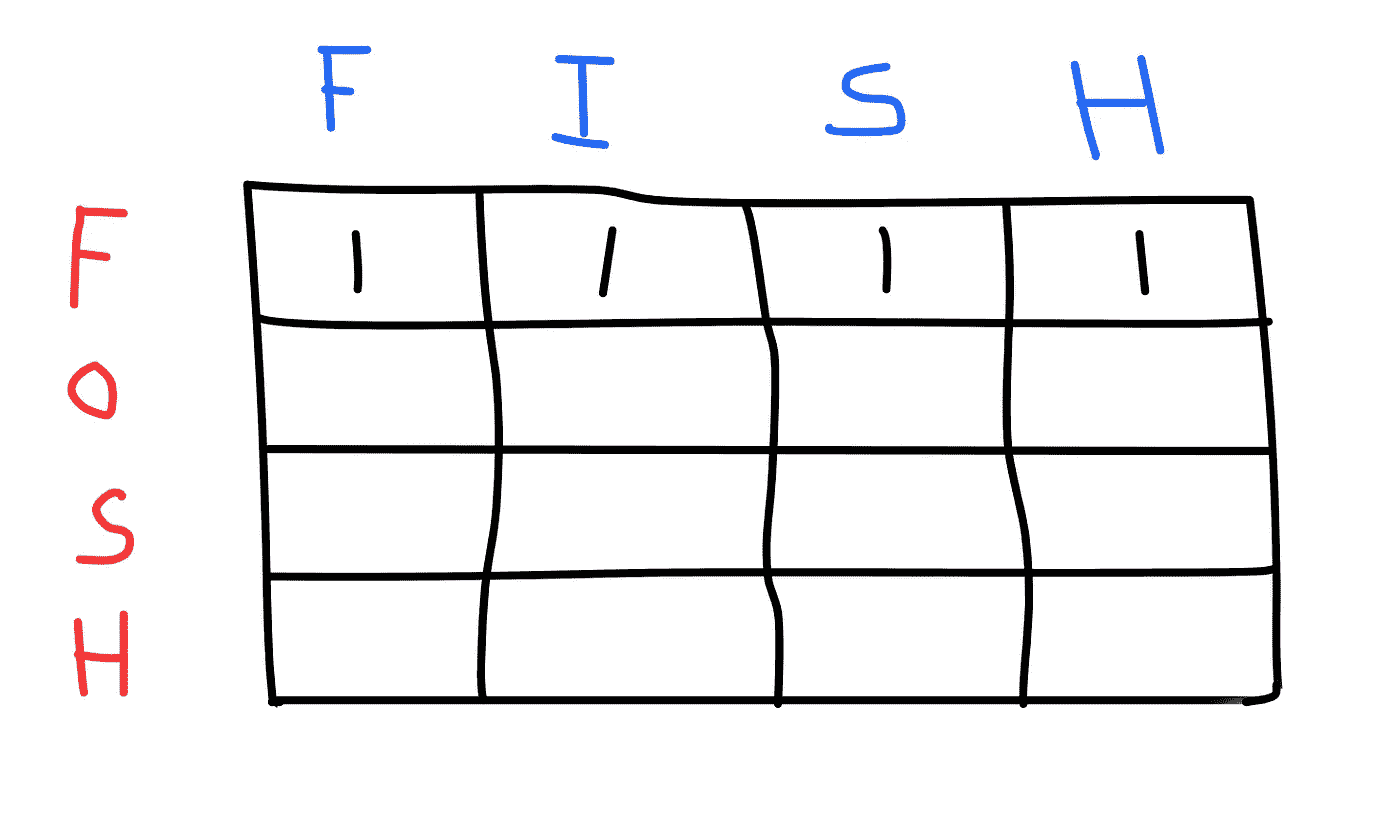 F I S H
F 1 1 1 1
O
S
H